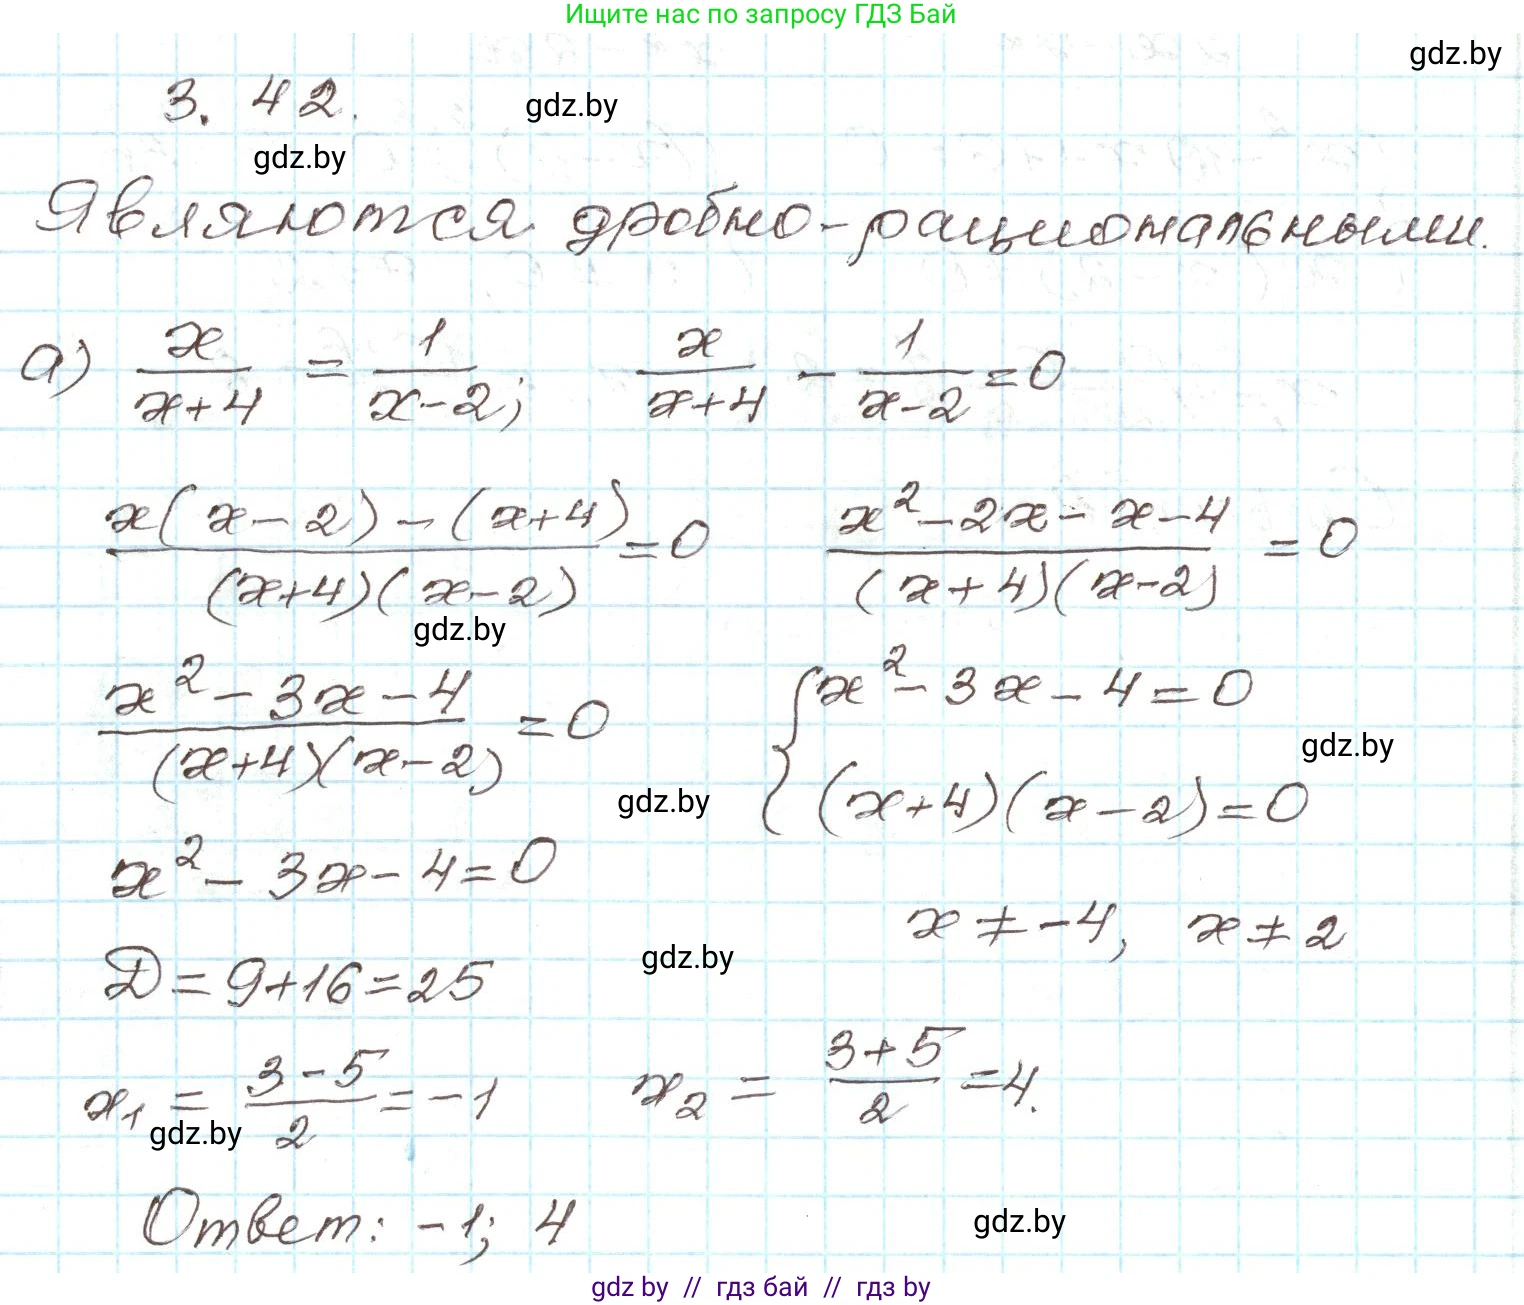 Ищите нас по запросу ГДЗ Бай
gdz.by
3.42.
gdz.by
gdz.by
Являются дробно-рациональными.
а) x/(x+4) = 1/(x-2); x/(x+4) - 1/(x-2) = 0
(x(x-2)-(x+4))/((x+4)(x-2)) = 0 (x²-2x-x-4)/((x+4)(x-2)) = 0
gdz.by
(x²-3x-4)/((x+4)(x-2)) = 0 { x²-3x-4=0
gdz.by
(x+4)(x-2)=0
gdz.by
x²-3x-4=0
x≠-4, x≠2
gdz.by
D=9+16=25
x₁ = (3-5)/2 = -1 x₂ = (3+5)/2 = 4.
gdz.by
Ответ: -1; 4
gdz.by
gdz by // гдз бай // гдз by